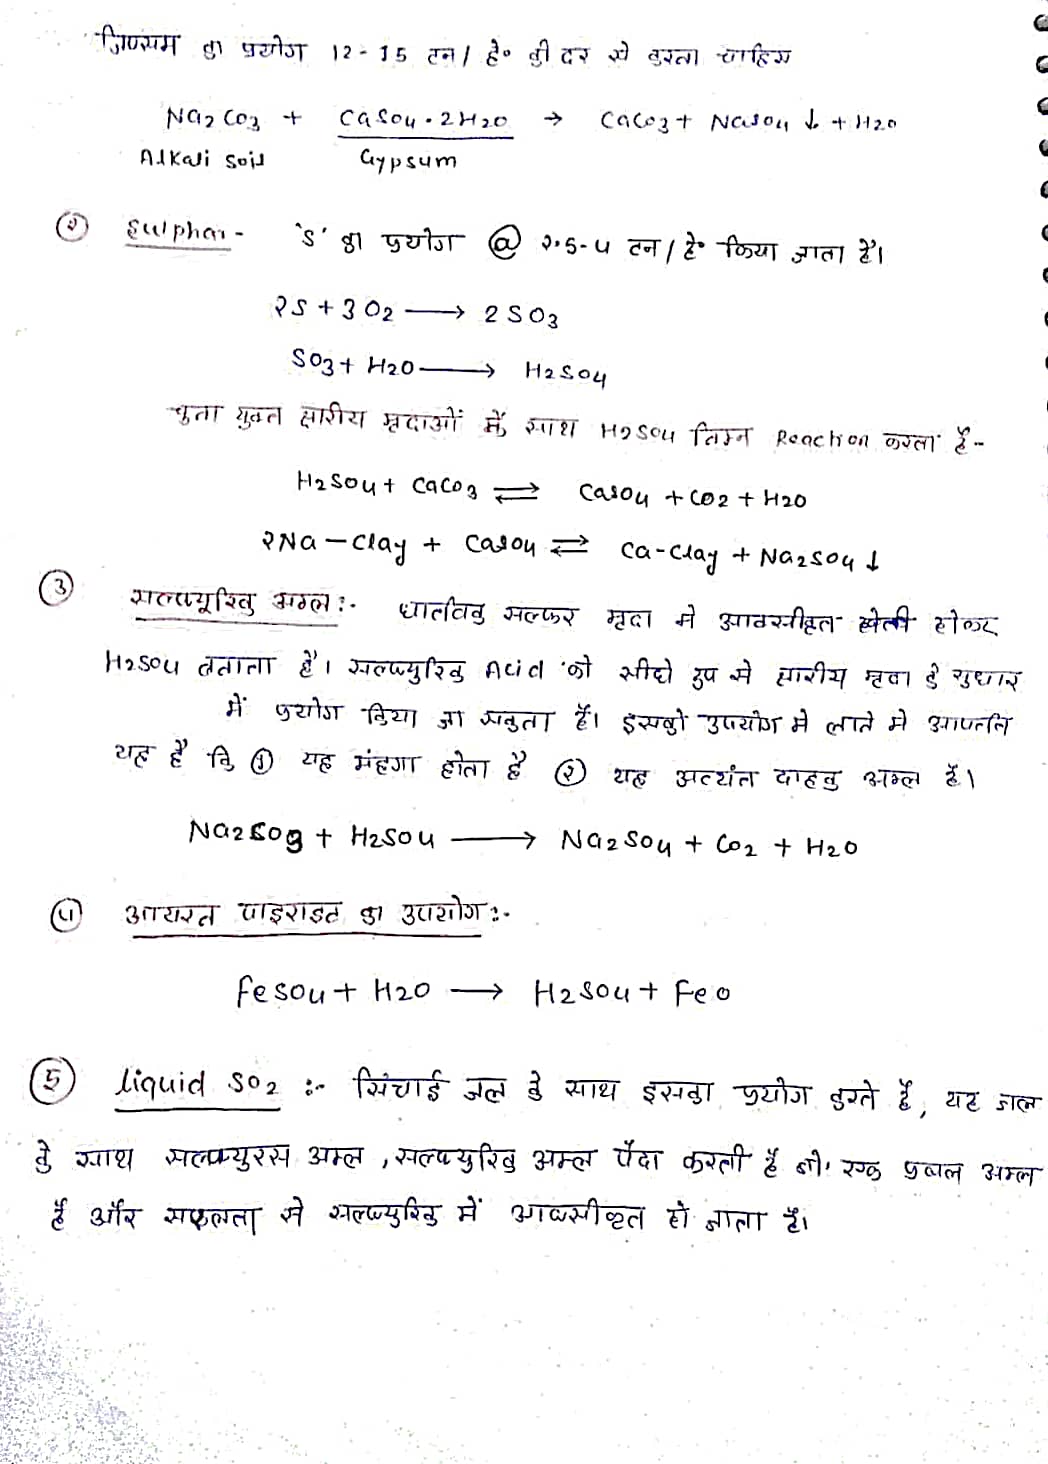 जिप्सम का प्रयोग 12-15 टन/ हे० की दर से करना चाहिए
Na2 CO3 + CaSO4 . 2H2O → CaCO3 + NaSO4 ↓ + H2O
Alkali soil Gypsum
② Sulphar - 'S' का प्रयोग @ 2.5-4 टन/ हे० किया जाता है।
2S + 3O2 ⟶ 2SO3
SO3 + H2O ⟶ H2SO4
चुना युक्त क्षारीय मृदाओं में साथ H2SO4 निम्न Reaction करता है -
H2SO4 + CaCO3 ⇌ CaSO4 + CO2 + H2O
2Na - Clay + CaSO4 ⇌ Ca-Clay + Na2SO4 ↓
③ सल्फ्यूरिक अम्ल :- धात्विक सल्फर मृदा मे आक्सीकृत होकर
H2SO4 बनाता है। सल्फ्युरिक Acid को सीधे रुप से क्षारीय मृदा के सुधार
में प्रयोग किया जा सकुता है। इसको उपयोग मे लाने मे आपत्ति
यह है कि ① यह मंहगा होता है ② यह अत्यंत दाहक अम्ल है।
Na2CO3 + H2SO4 ⟶ Na2SO4 + CO2 + H2O
④ आयरन पाइराइट का उपयोग :-
FeSO4 + H2O ⟶ H2SO4 + FeO
⑤ liquid SO2 :- सिंचाई जल के साथ इसका प्रयोग करते है, यह जल
के साथ सल्फ्युरस अम्ल, सल्फ्युरिक अम्ल पैदा करती है जो एक प्रबल अम्ल
है और सफलता से सल्फ्युरिक में आक्सीकृत हो जाता है।